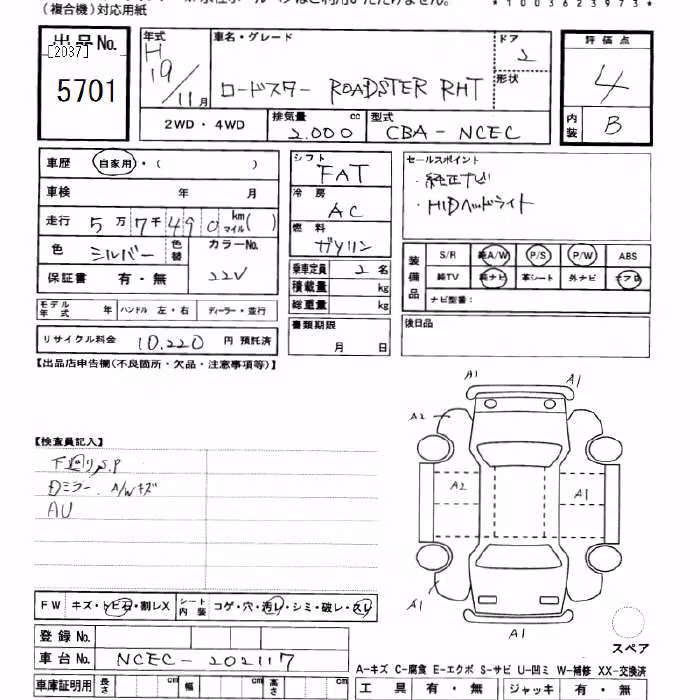 (複合機)対応用紙
*1003623973*
出品No.
[2037]
5701
年式 H 19/11月
車名・グレード ロードスター ROADSTER RHT
ドア 2
形状
評価点 4
内装 B
2WD・4WD
排気量 2.000 cc
型式 CBA-NCEC
車歴 自家用・( )
車検 年 月
走行 5万7千490 km マイル( )
色 シルバー 色替
カラーNo. 22V
保証書 有・無
シフト FAT
冷房 AC
燃料 ガソリン
乗車定員 2名
積載量 kg
総重量 kg
セールスポイント
・純正ナビ
・HIDヘッドライト
装備品 S/R 純A/W P/S P/W ABS
純TV 純ナビ 革シート 外ナビ エアB
ナビ型番:
モデル年式 年 ハンドル 左・右 ディーラー・並行
書類期限 月 日
後日品
リサイクル料金 10.220 円 預託済
【出品店申告欄(不良箇所・欠品・注意事項等)】
A1 A1
A2
A2 A1
A1 A1
A1
【検査員記入】
下廻りS.P
Dミラー、A/Wキズ
AU
FW キズ・トビ石・割レX シート内装 コゲ・穴・汚レ・シミ・破レ・スレ
登録No.
車台No. NCEC-202117
スペア
A-キズ C-腐食 E-エクボ S-サビ U-凹ミ W-補修 XX-交換済
車庫証明用 長さ cm 幅 cm 高さ cm
工具 有・無 ジャッキ 有・無